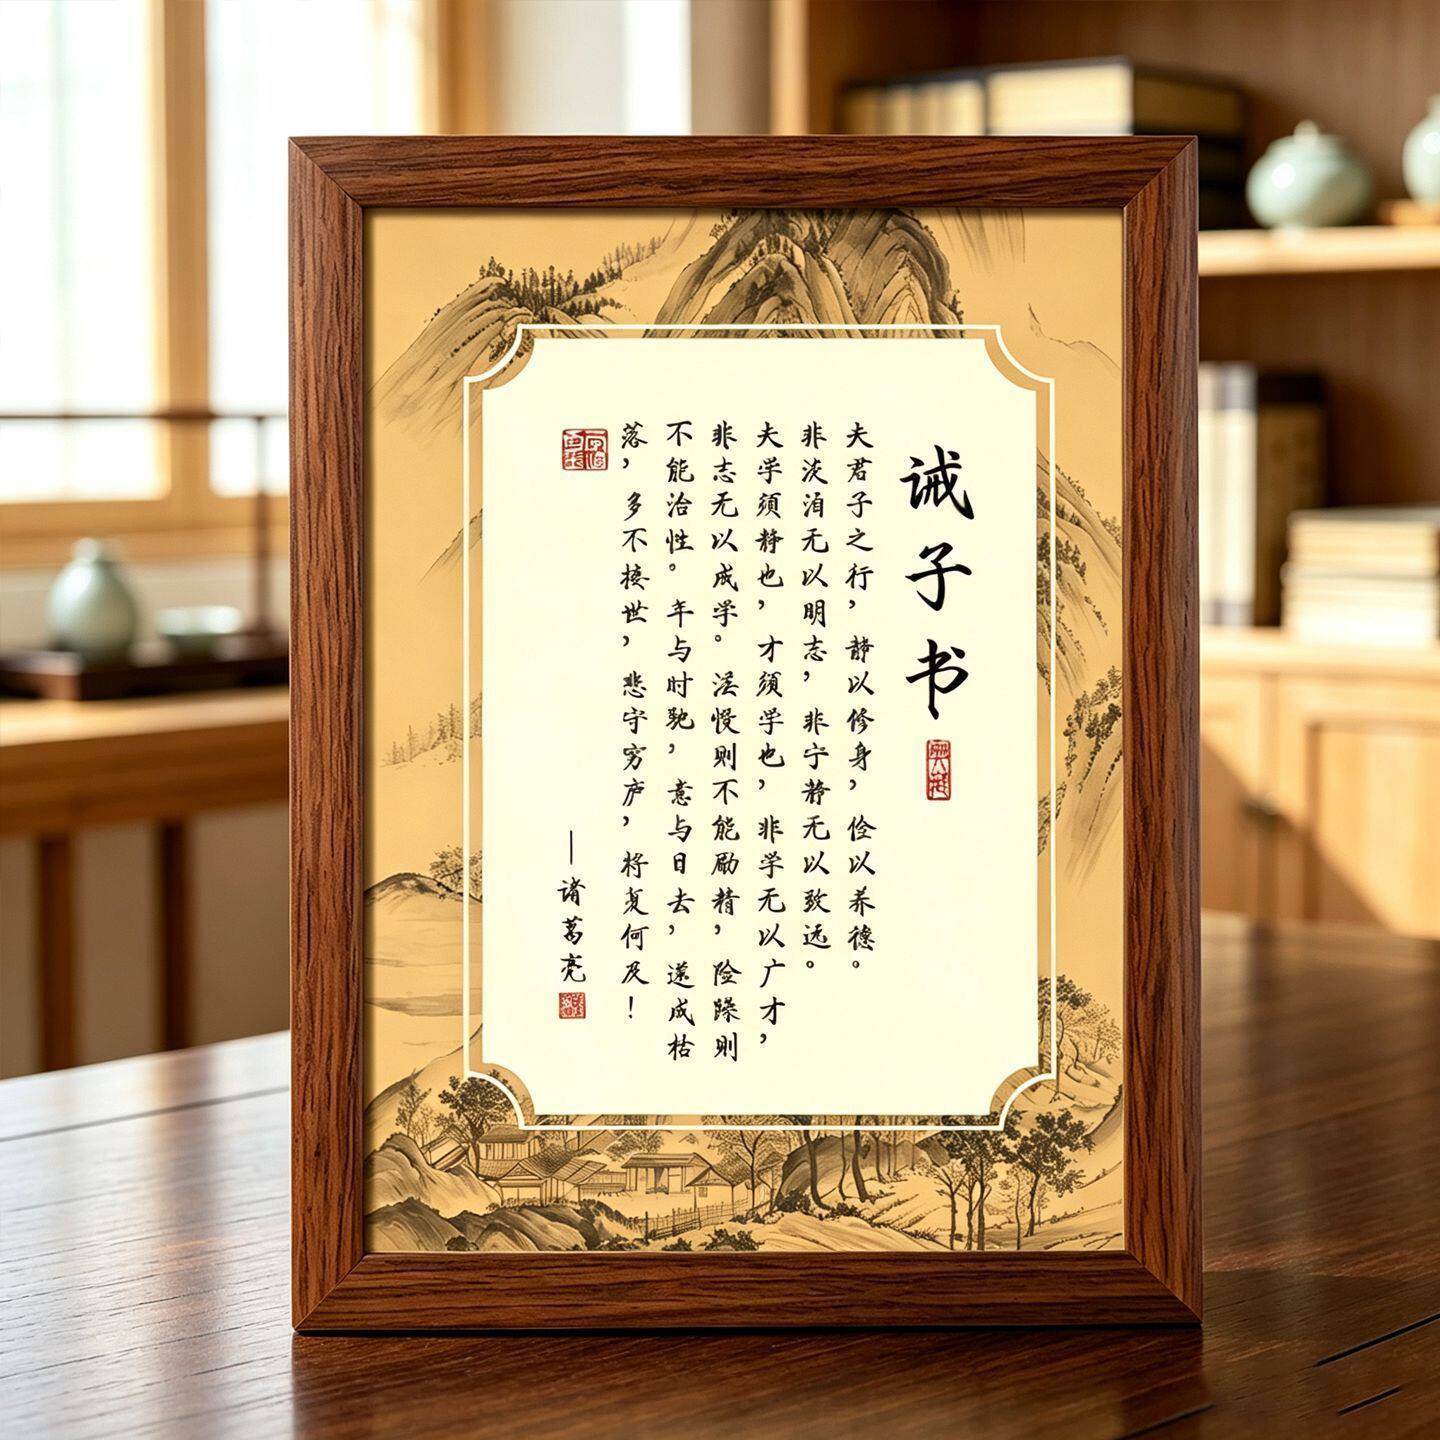 诫子书
夫君子之行，静以修身，俭以养德。
非淡泊无以明志，非宁静无以致远。
夫学须静也，才须学也，非学无以广才，
非志无以成学。淫慢则不能励精，险躁则
不能治性。年与时驰，意与日去，遂成枯
落，多不接世，悲守穷庐，将复何及！
—诸葛亮